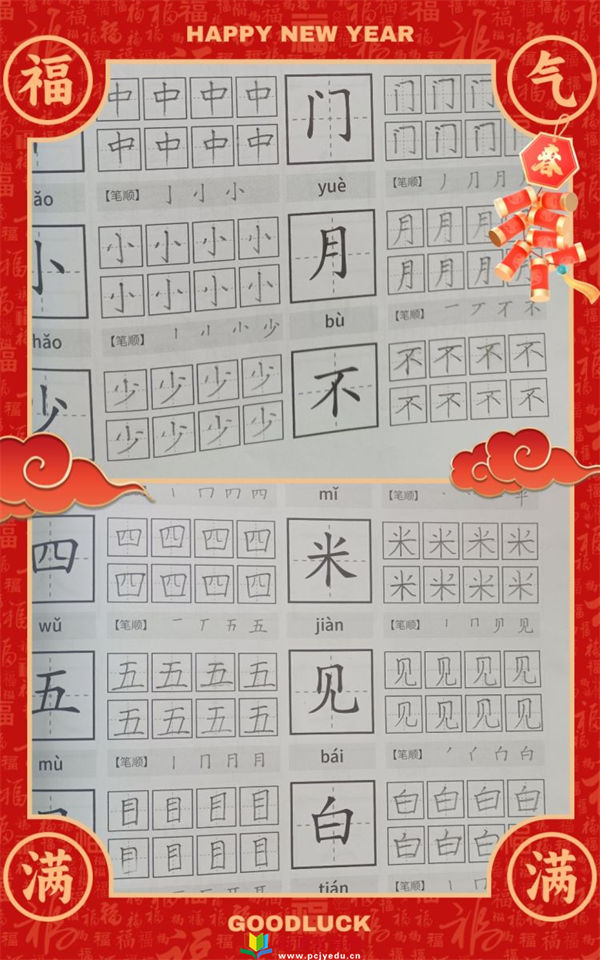 HAPPY NEW YEAR
福 气
春
中 中 中 中 门 门 门 门
中 中 中 中 门 门 门
ǎo 【笔顺】 亅 小 小 yuè 【笔顺】 丿 月 月
小 小 小 小 小 月 月 月 月
小 小 小 小 月 月 月 月
shǎo 【笔顺】 少 bù 【笔顺】 一 丆 不 不
少 少 少 少 少 不 不 不 不 不
少 少 少 少 不 不 不 不
四 mǐ 【笔顺】
四 四 四 四 四 米 米 米 米 米
四 四 四 四 米 米 米 米
wǔ 【笔顺】 一 丅 五 jiàn 【笔顺】 丨 冂 见
五 五 五 五 五 见 见 见 见 见
五 五 五 五 见 见 见 见
mù 【笔顺】 丨 冂 月 目 bái 【笔顺】 白
目 目 目 目 白 白 白 白 白
目 目 目 目 白 白 白
tián 【笔顺】 丨 冂
满 满
GOODLUCK
www.pcjyedu.cn